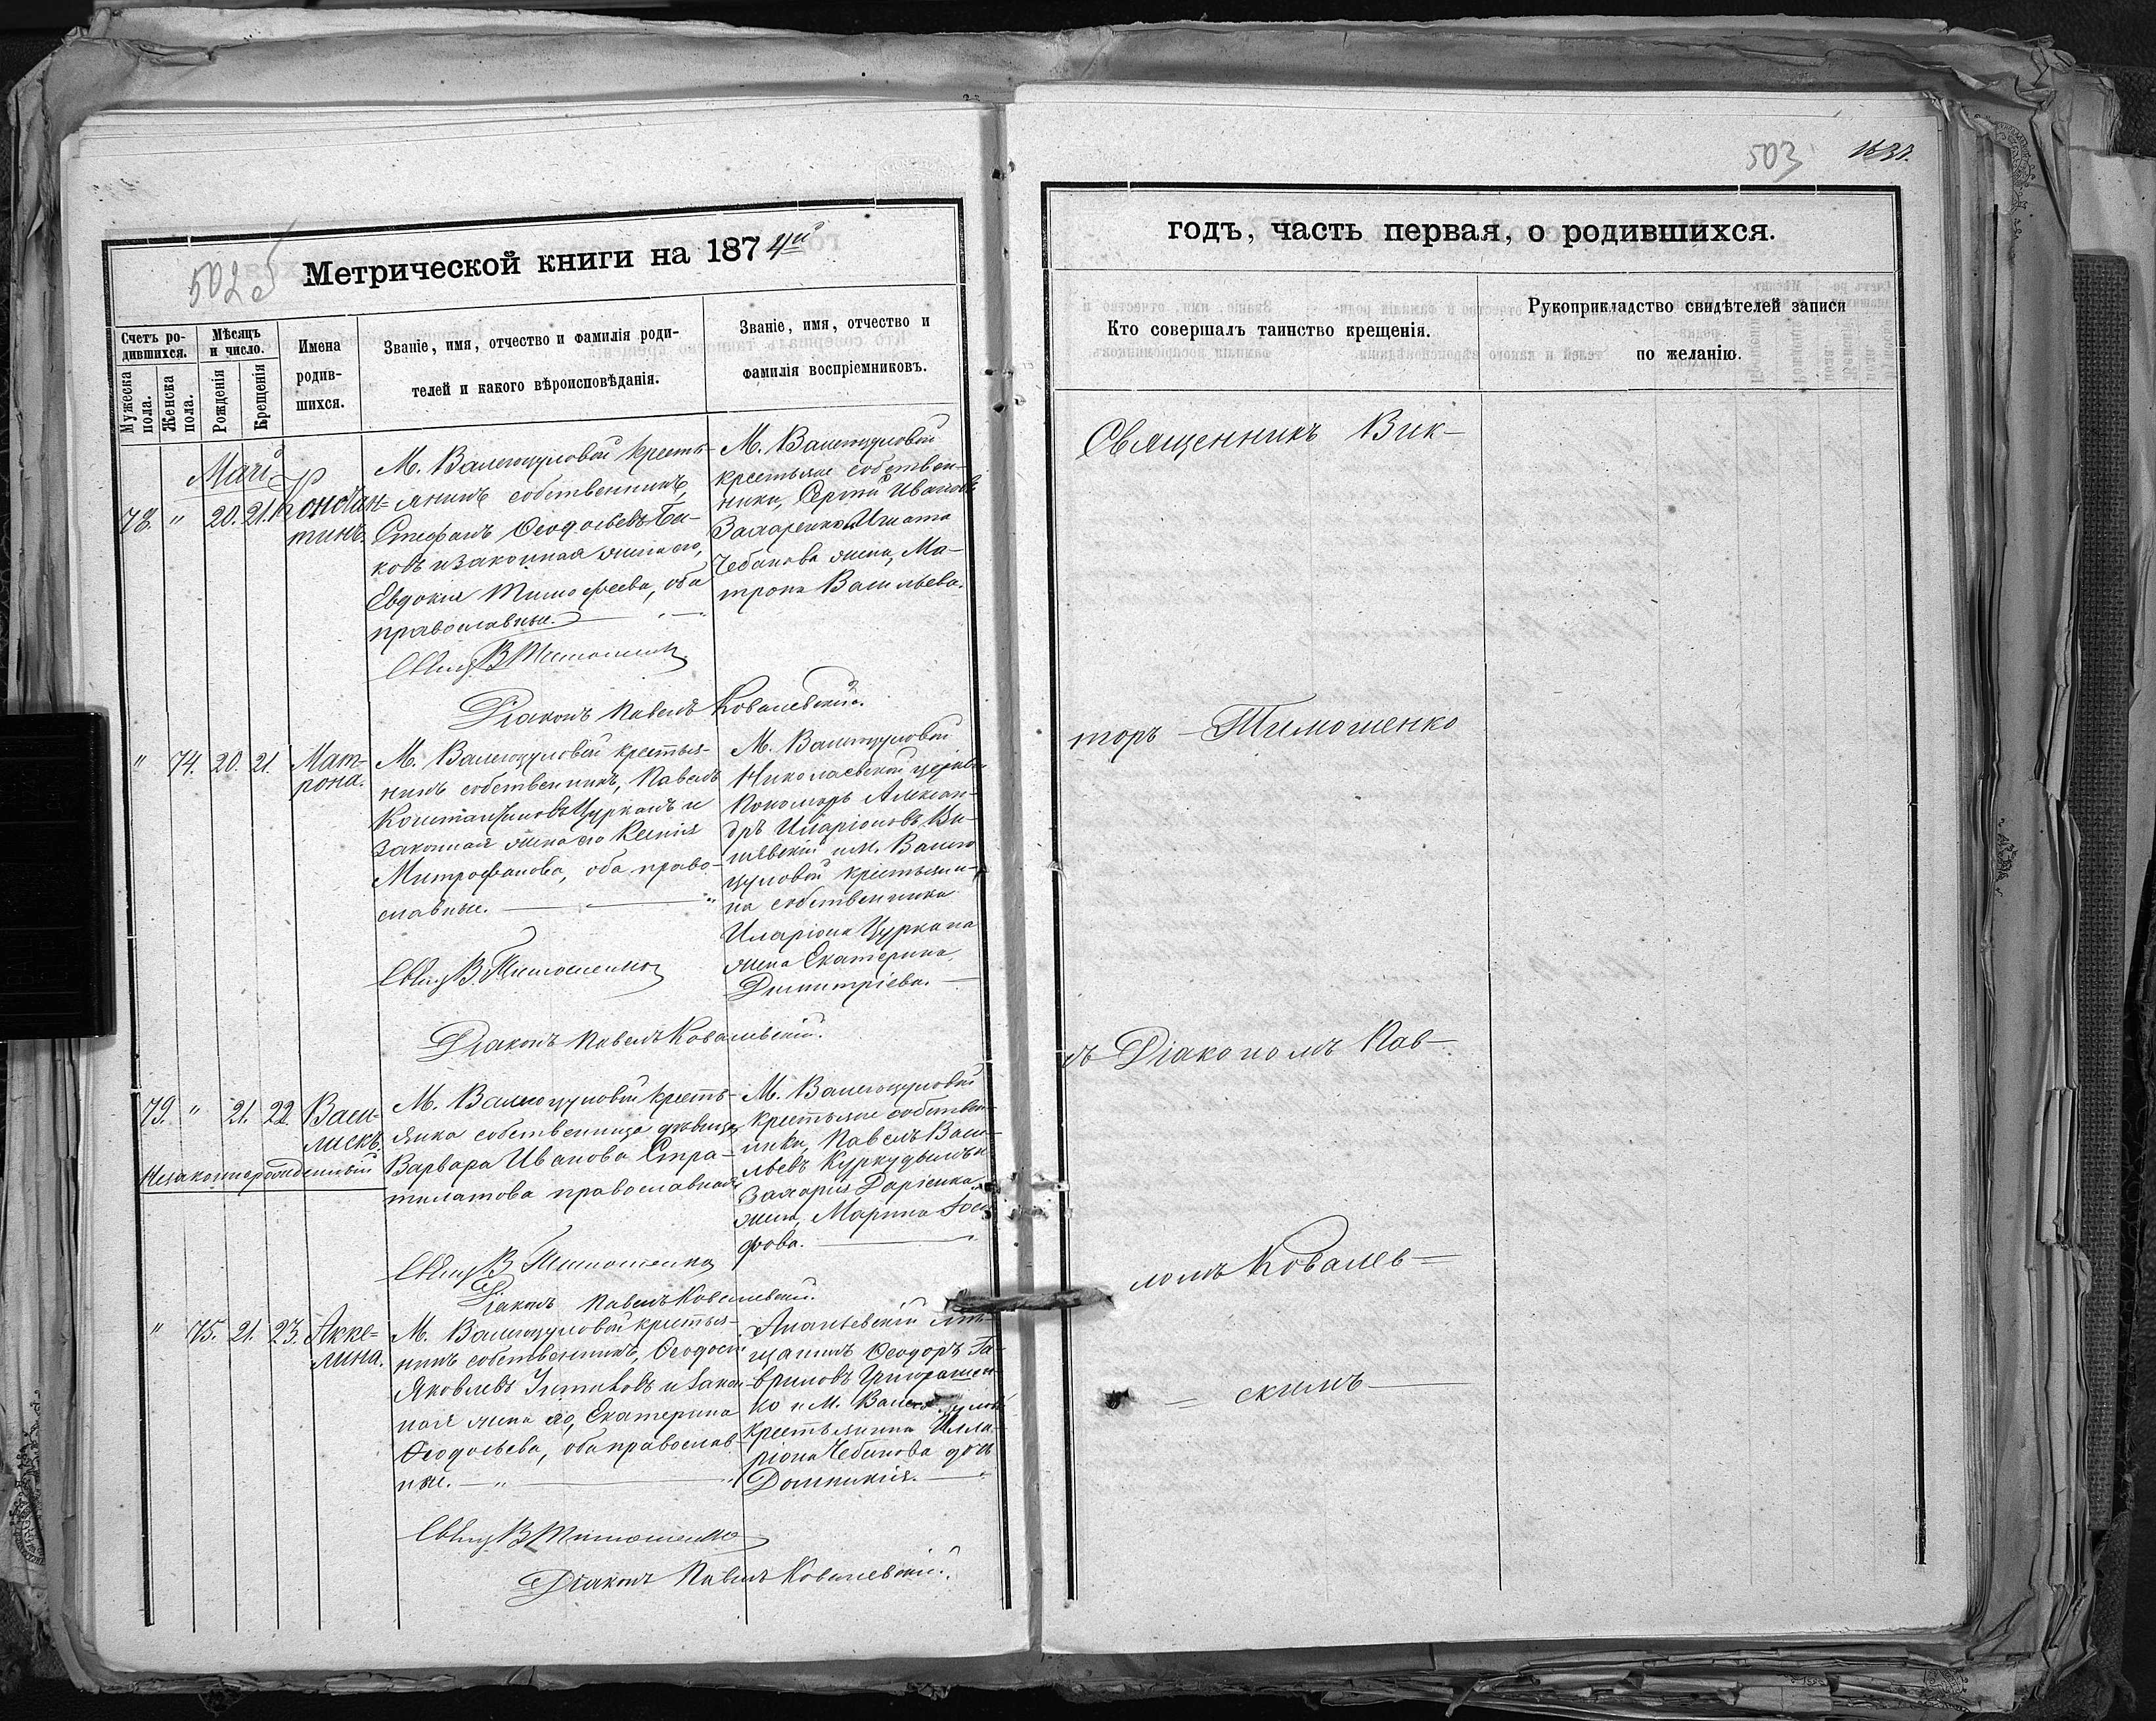 502об
Метрической книги на 1874й
Счетъ ро-
дившихся.
Мужеска пола.
Женска пола.
Мѣсяцъ
и число.
Рожденія
Крещенія
Имена
родив-
шихся.
Званіе, имя, отчество и фамилія роди-
телей и какого вѣроисповѣданія.
Званіе, имя, отчество и
фамилія воспріемниковъ.
Маія
78. " 20. 21. Констан=
тинъ.
М. Валегоцуловой кресть-
янинъ собственникъ,
Стефанъ Ѳеодосьевъ Бы-
ковъ и законная жена его,
Евдокія Тимофеева, оба
православные.
М. Валегоцуловой
крестьяне собствен-
ники, Сергій Ивановъ
Захаренко и Игната
Чебанова жена, Ма-
трона Васильева.
Свящ В Тимошенко
Діаконъ Павелъ Ковалевскій.
" 74. 20. 21. Мат-
рона.
М. Валегоцуловой крестья-
нинъ собственникъ, Павелъ
Константиновъ Цурканъ и
законная жена его Ксенія
Митрофанова, оба право-
славные.
М. Валегоцуловой
Николаевской церкви
Пономарь Алексан-
дръ Иларіоновъ Ви-
и М. Валего
цуловой крестьяни-
на собственника
Иларіона Цуркана
жена Екатерина
Димитріева.
Свящ В. Тимошенко
Діаконъ Павелъ Ковалевскій.
79. " 21. 22. Васи-
лискъ.
Незаконнорожденный
М. Валегоцуловой кресть-
янка собственница дѣвица
Варвара Иванова Стра-
тилатова православная
М. Валегоцуловой
крестьяне собствен-
ники, Павелъ Васи-
льевъ и
Захарія Даріенка
жена, Марина Іоси
фова.
Свящ В Тимошенко
Діаконъ Павелъ Ковалевскій.
" 75. 21. 23. Акке=
лина.
М. Валегоцуловой крестья-
нинъ собственникъ, Ѳеодосій
Яковлевъ и закон
ная жена его, Екатерина
Ѳеодосьева, оба православ-
ные.
Ананьевскій мѣ-
щанинъ Ѳеодоръ Га-
вриловъ Григорашен-
ко и М. Валегоцулов
крестьянина Илла-
ріона Чебанова дочь
Домникія.
Свящ В Тимошенко
Діаконъ Павелъ Ковалевскій.
503
годъ, часть первая, о родившихся.
Кто совершалъ таинство крещенія.
Рукоприкладство свидѣтелей записи
по желанію.
Священникъ Вик-
торъ Тимошенко
съ Діакономъ Пав-
ломъ Ковалев=
= скимъ